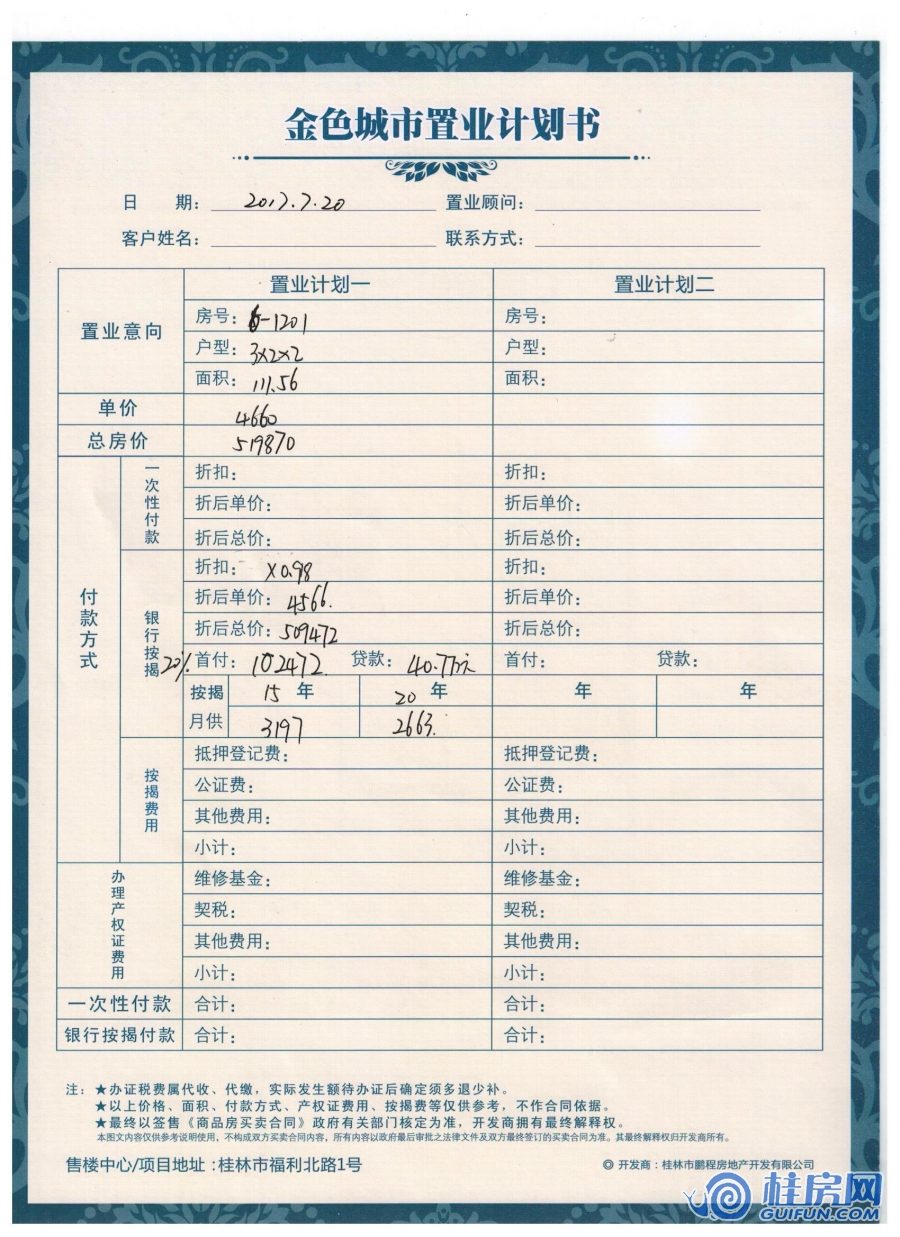 金色城市置业计划书
日 期: 2017.7.20 置业顾问:
客户姓名: 联系方式:
置业意向 置业计划一 置业计划二
房号: 6-1201 房号:
户型: 3×2×2 户型:
面积: 111.56 面积:
单价 4660
总房价 519870
付款方式
一次性付款
折扣: 折扣:
折后单价: 折后单价:
折后总价: 折后总价:
银行按揭
折扣: ×0.98 折扣:
折后单价: 4566. 折后单价:
折后总价: 509472 折后总价:
20% 首付: 102472 贷款: 40.7万元 首付: 贷款:
按揭 15 年 20 年 年 年
月供 3197 2663.
按揭费用
抵押登记费: 抵押登记费:
公证费: 公证费:
其他费用: 其他费用:
小计: 小计:
办理产权证费用
维修基金: 维修基金:
契税: 契税:
其他费用: 其他费用:
小计: 小计:
一次性付款 合计: 合计:
银行按揭付款 合计: 合计:
注: ★办证税费属代收、代缴,实际发生额待办证后确定须多退少补。
★以上价格、面积、付款方式、产权证费用、按揭费等仅供参考,不作合同依据。
★最终以签售《商品房买卖合同》政府有关部门核定为准,开发商拥有最终解释权。
本图文内容仅供参考说明使用,不构成双方买卖合同内容,所有内容以政府最后审批之法律文件及双方最终签订的买卖合同为准。其最终解释权归开发商所有。
售楼中心/项目地址:桂林市福利北路1号 ◎ 开发商:桂林市鹏程房地产开发有限公司
桂房网
GUIFUN.COM